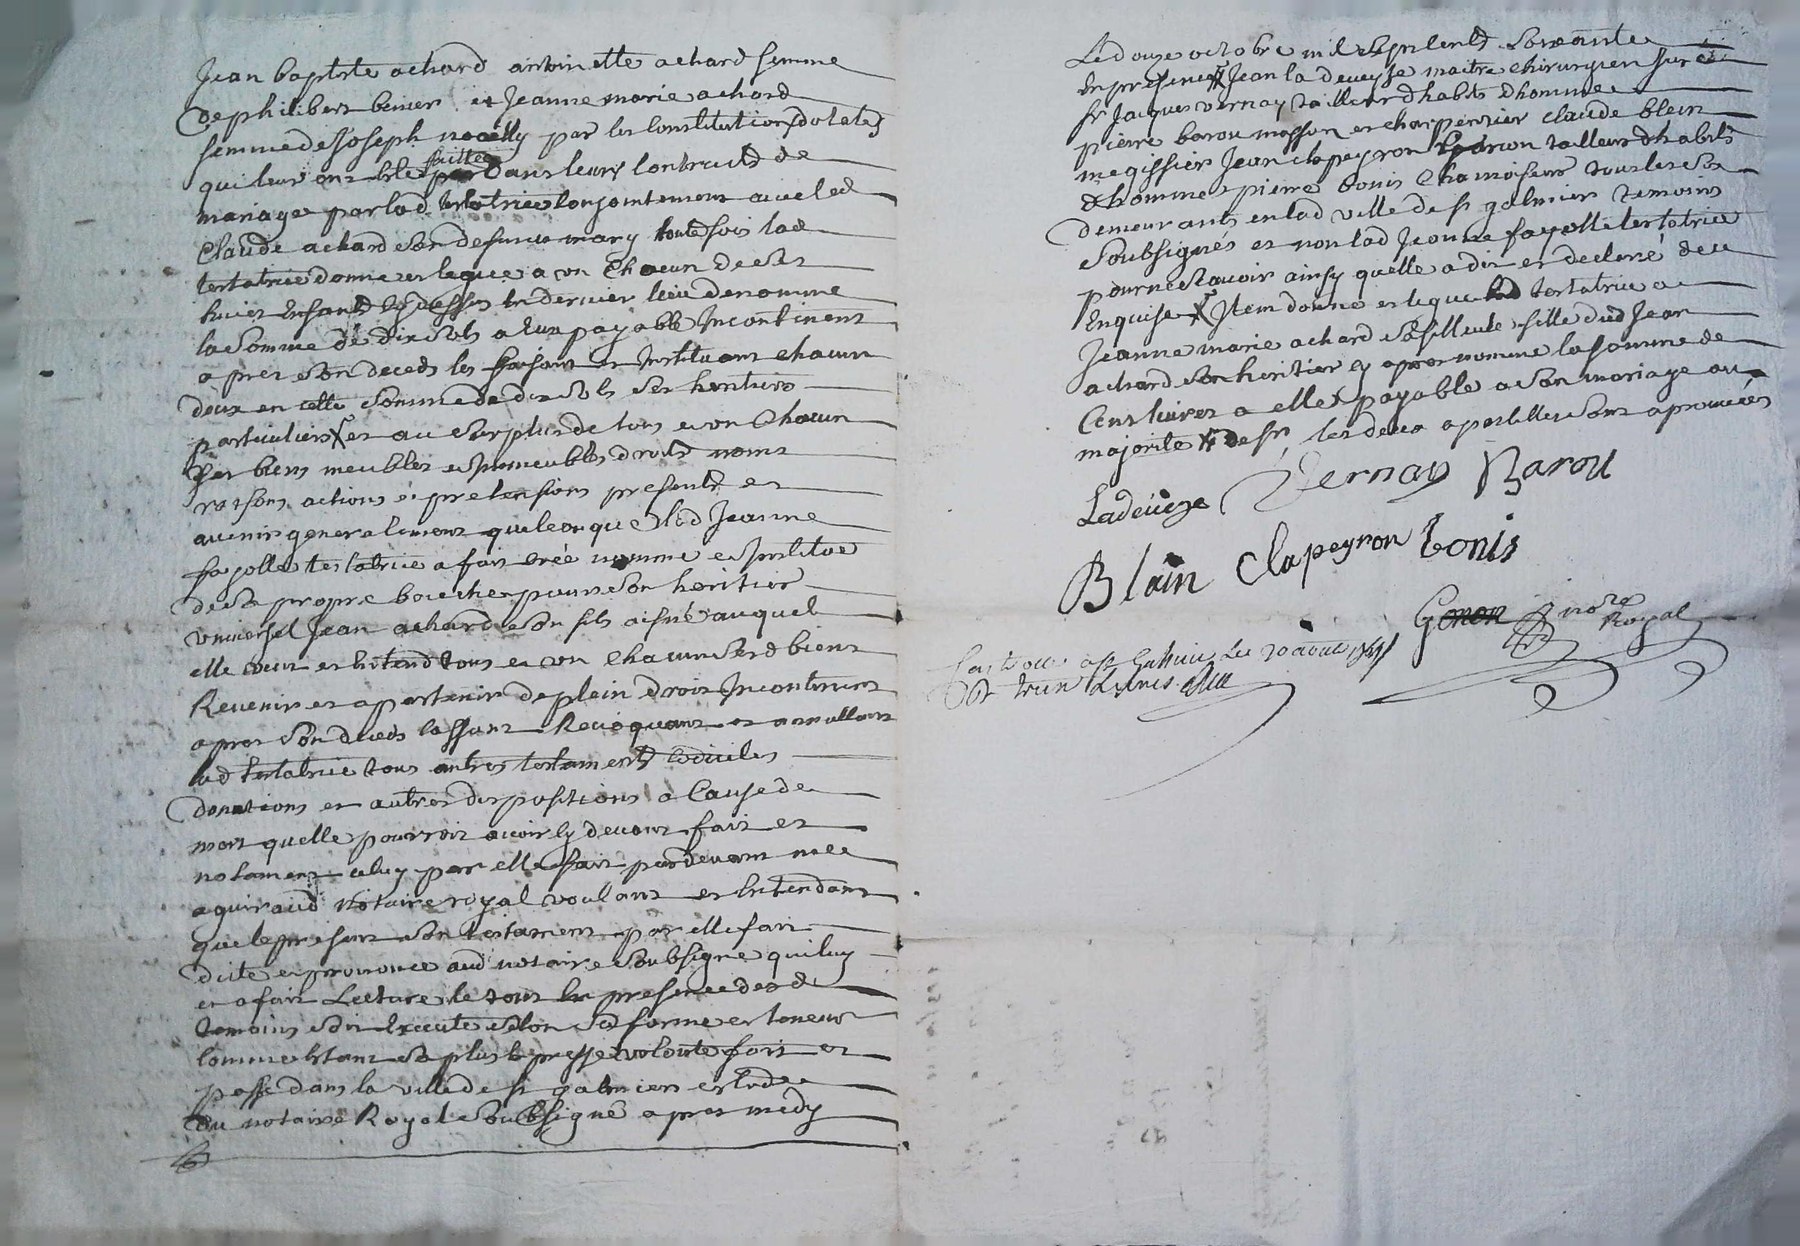 Jean baptiste achard antoinette achard femme
de philibert benier et Jeanne marie achard
femme de Joseph par les Constitutions dotales
qui leur ont été faittes dans leurs Contracts de
mariage par lad. testatrice Conjointement avec led
Claude achard son defunct mary toutefois lad
testatrice donne et legue a un Chacun de ses
huict Enfants cy dessus en dernier lieu denommé
la Somme de dix Sols a Eux payable Incontinent
apres son deceds les faisant et Instituant chacun
deux en cette Somme de dix Sols ses heritiers
particuliers et au Surplus de tous et un Chacun
ses biens meubles et Immeubles droits noms
raisons actions et pretensions presents et
avenir generalement quelconque lad Jeanne
fayolle testatrice a fait créé nommé et Institué
de sa propre bouche pour son heritier
universel Jean achard son fils aisné auquel
elle veut et Entend tous et un Chacun sesd biens
Revenir et apartenir de plein droit Incontinent
apres son deceds Cassant Revoquant et annullant
lad testatrice tous autres testaments Codiciles
donations et autres dispositions a Cause de
mort quelle pourroit avoir Cy devant fait et
notament celuy par elle fait pardevant me
aguiraud notaire royal voulant et Entendant
que le present son testament par elle fait
dicté et prononcé aud notaire Soubsigné qui luy
en a fait Lecture le tout En presence desd
temoins soit Executé selon sa forme et teneur
Comme Etant sa plus Expresse volonté fait et
passé dans la ville de st galmier Estude
du notaire Royal Soubsigné apres midy
Le douze octobre mil sept cents Soixante
En presence de Jean ladeveze maitre chirurgien juré
sr Jacques vernay tailleur dhabits dhomme
pierre barou masson et charpentier claude blein
megissier Jean clapeyron tailleur dhabits
dhomme pierre tonis Chamoiseur tous les Six
demeurants en lad ville de st galmier temoins
Soubsignés et non lad Jeanne fayolle testatrice
pour ne Scavoir ainsy quelle a dit et declaré de ce
Enquise Item donne et legue lad testatrice a
Jeanne marie achard sa filleule fille dud Jean
achard son heritier cy apres nommé la somme de
Cent livres a elle payable a son mariage ou
majorité les deux apostilles sont aprouvées
Ladeveze Vernay Barou
Blain Clapeyron tonis
Gonon nore
Royal
Controllé a st Galmier Le 20